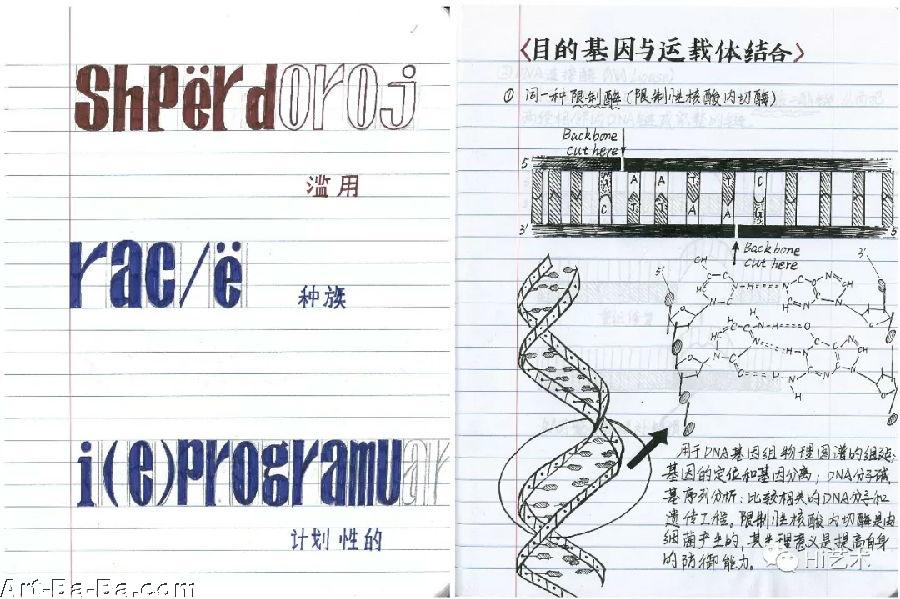 shpërdoroj
滥用
rac/ë
种族
i(e)programuar
计划性的
Art-Ba-Ba.com
《目的基因与运载体结合》
① 同一种限制酶(限制性核酸内切酶)
Backbone
cut here
5'
A
A
T
T
C
C
T
T
A
A
3'
5'
Backbone
cut here
用于DNA基因组物理图谱的组建;
基因的定位和基因分离;DNA分子碱
基序列分析;比较相关的DNA分子和
遗传工程。限制性核酸内切酶是由
细菌产生的,其生理意义是提高自身
的防御能力。
Hi艺术